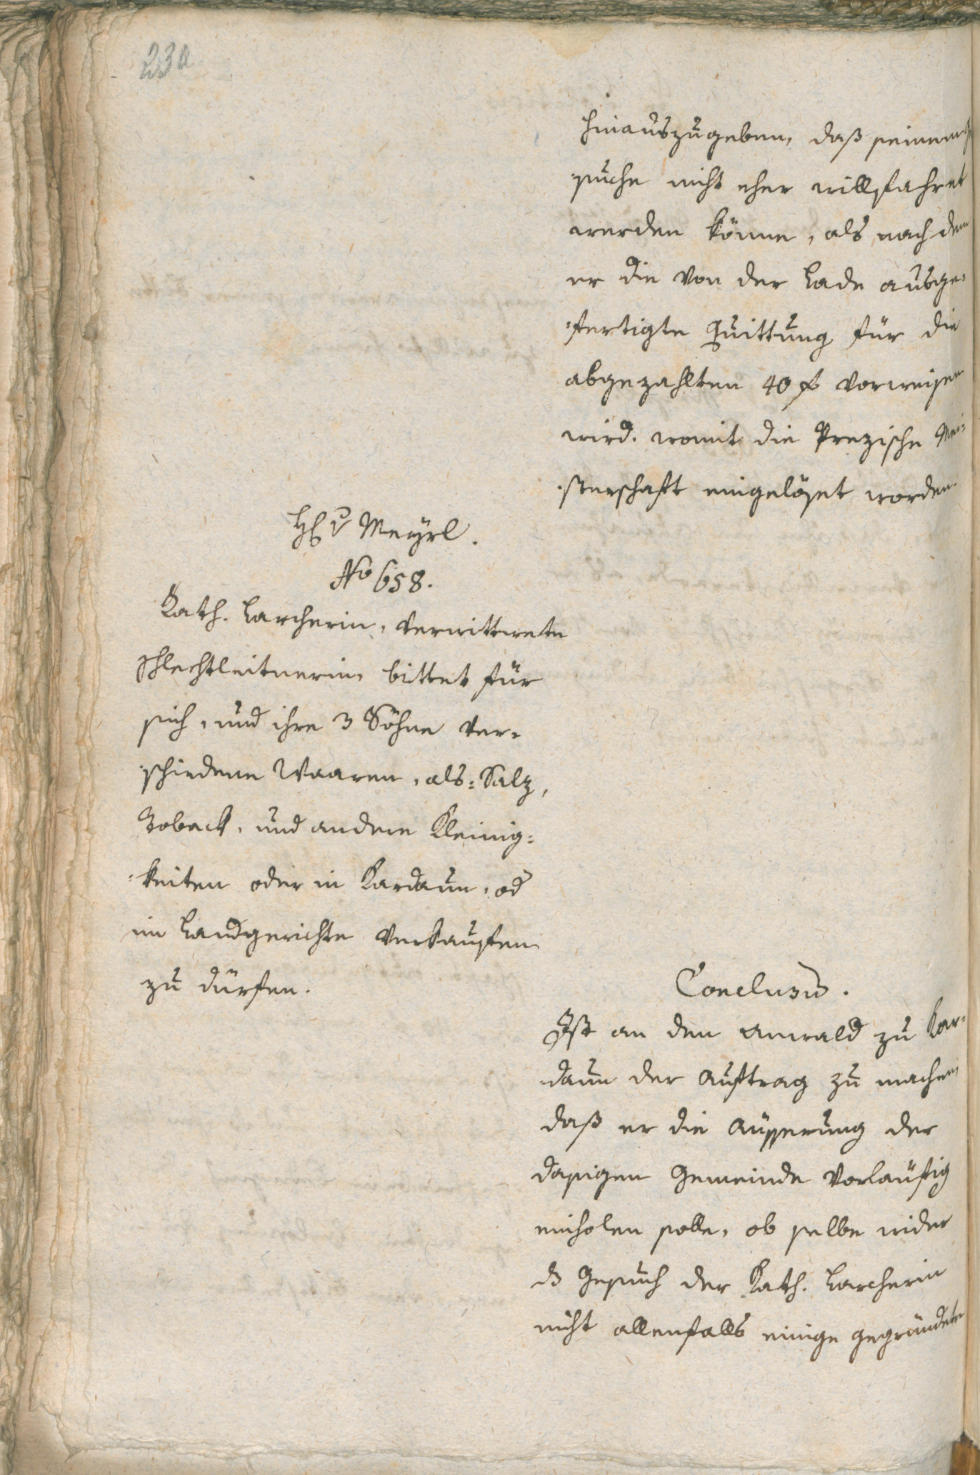 230
hinauszugeben, daß seinem Ge¬
suche nicht eher willfahret
werden könne, als nach dem
er die von der Lade ausge¬
fertigte Quittung für die
abgezahlten 40 f vorweisen
wird. womit die Prezische Mei¬
sterschaft eingelöset worden.
H. v Meyrl.
No 658.
Kath. Larcherin, verwittwete
Schlechtleitnerin bittet für
sich, und ihre 3 Söhne ver¬
schiedene Waaren, als: Salz,
Toback, und andere Kleinig¬
keiten oder in Kardaun, od
im Landgerichte verkaufen
zu dürfen.
Conclusum.
Ist an den Anwald zu Kar¬
daun der Auftrag zu machen
daß er die Äusserung der
dasigen Gemeinde vorläufig
einholen solle, ob selbe wider
ds Gesuch der Kath. Larcherin
nicht allenfalls einige gegründete